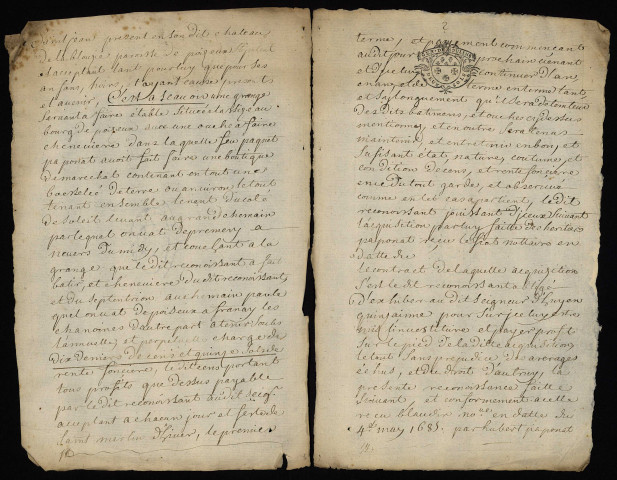 present en son dit chateau
de la paroisse de
acceptant tant pour luy que pour ses
hoirs et ayant cause presents
et avenir, C'est a scavoir une grange
servant a faire etable scituée
bourg de poiseux avec une ouche a faire
cheneviere dans laquelle feu paquet
paponat avoit fait faire une boutique
de marechal contenant en tout une
boisselée de terre ou environ le tout
tenant ensemble tenant du coté
de soleil levant au grand chemin
par lequel on va de premery a
nevers du midy, et couchant a la
grange que ledit reconoissant a fait
batir, et cheneviere dudit reconoissant,
et du septentrion au chemain par le
quel on va de poiseux a franay les
chanoines d'autre part a tenir sous les
et perpetuelle charge de
dix deniers de cens et quinze sols de
rente fonciere, ledit cens portant
tous profits que dessus payable
par ledit reconoissant audit seigr
acceptant a chacun jour et feste de
saint martin d'hiver, le premier
2
terme, et payement commençant
audit jour prochain venant
et que luy continuer d'an
en an, et de terme en terme tant
et sy longuement qu'il sera detenteur
des dits batimens, et ouche cy dessus
mentionnes, et en outre sera tenus
maintenir et entretenir en bon, et
sufisant état, nature, coutume, et
condition de cens, et rente fonciere
en ce du tout garde, et observée
comme en tel cas apartient, ledit
reconoissant jouissant d'iceux suivant
l'acquisition par luy faitte des heritiers
paponat reçu notaire en
datte du
le contract de laquelle acquisition
s'est ledit reconoissant
d'exiber audit seigneur
quinzaine pour sur iceluy estre
mis l'investiture et payer profit
sur le pied de laditte acquisition
le tout sans prejudice des arerages
echus, et du droit d'autruy, la
presente reconoissance faitte
suivant et conformement a celle
reçu blaudin nore en datte du
4e may 1681 par hubert paponat